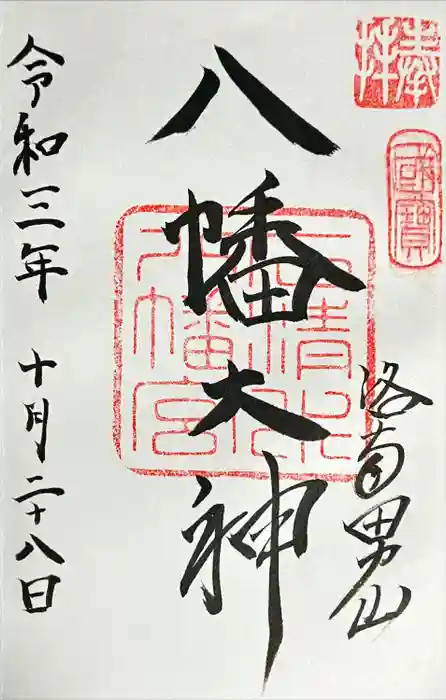 奉拝
國寳
洛南男山
八幡大神
石清水八幡宮
令和三年 十月二十八日